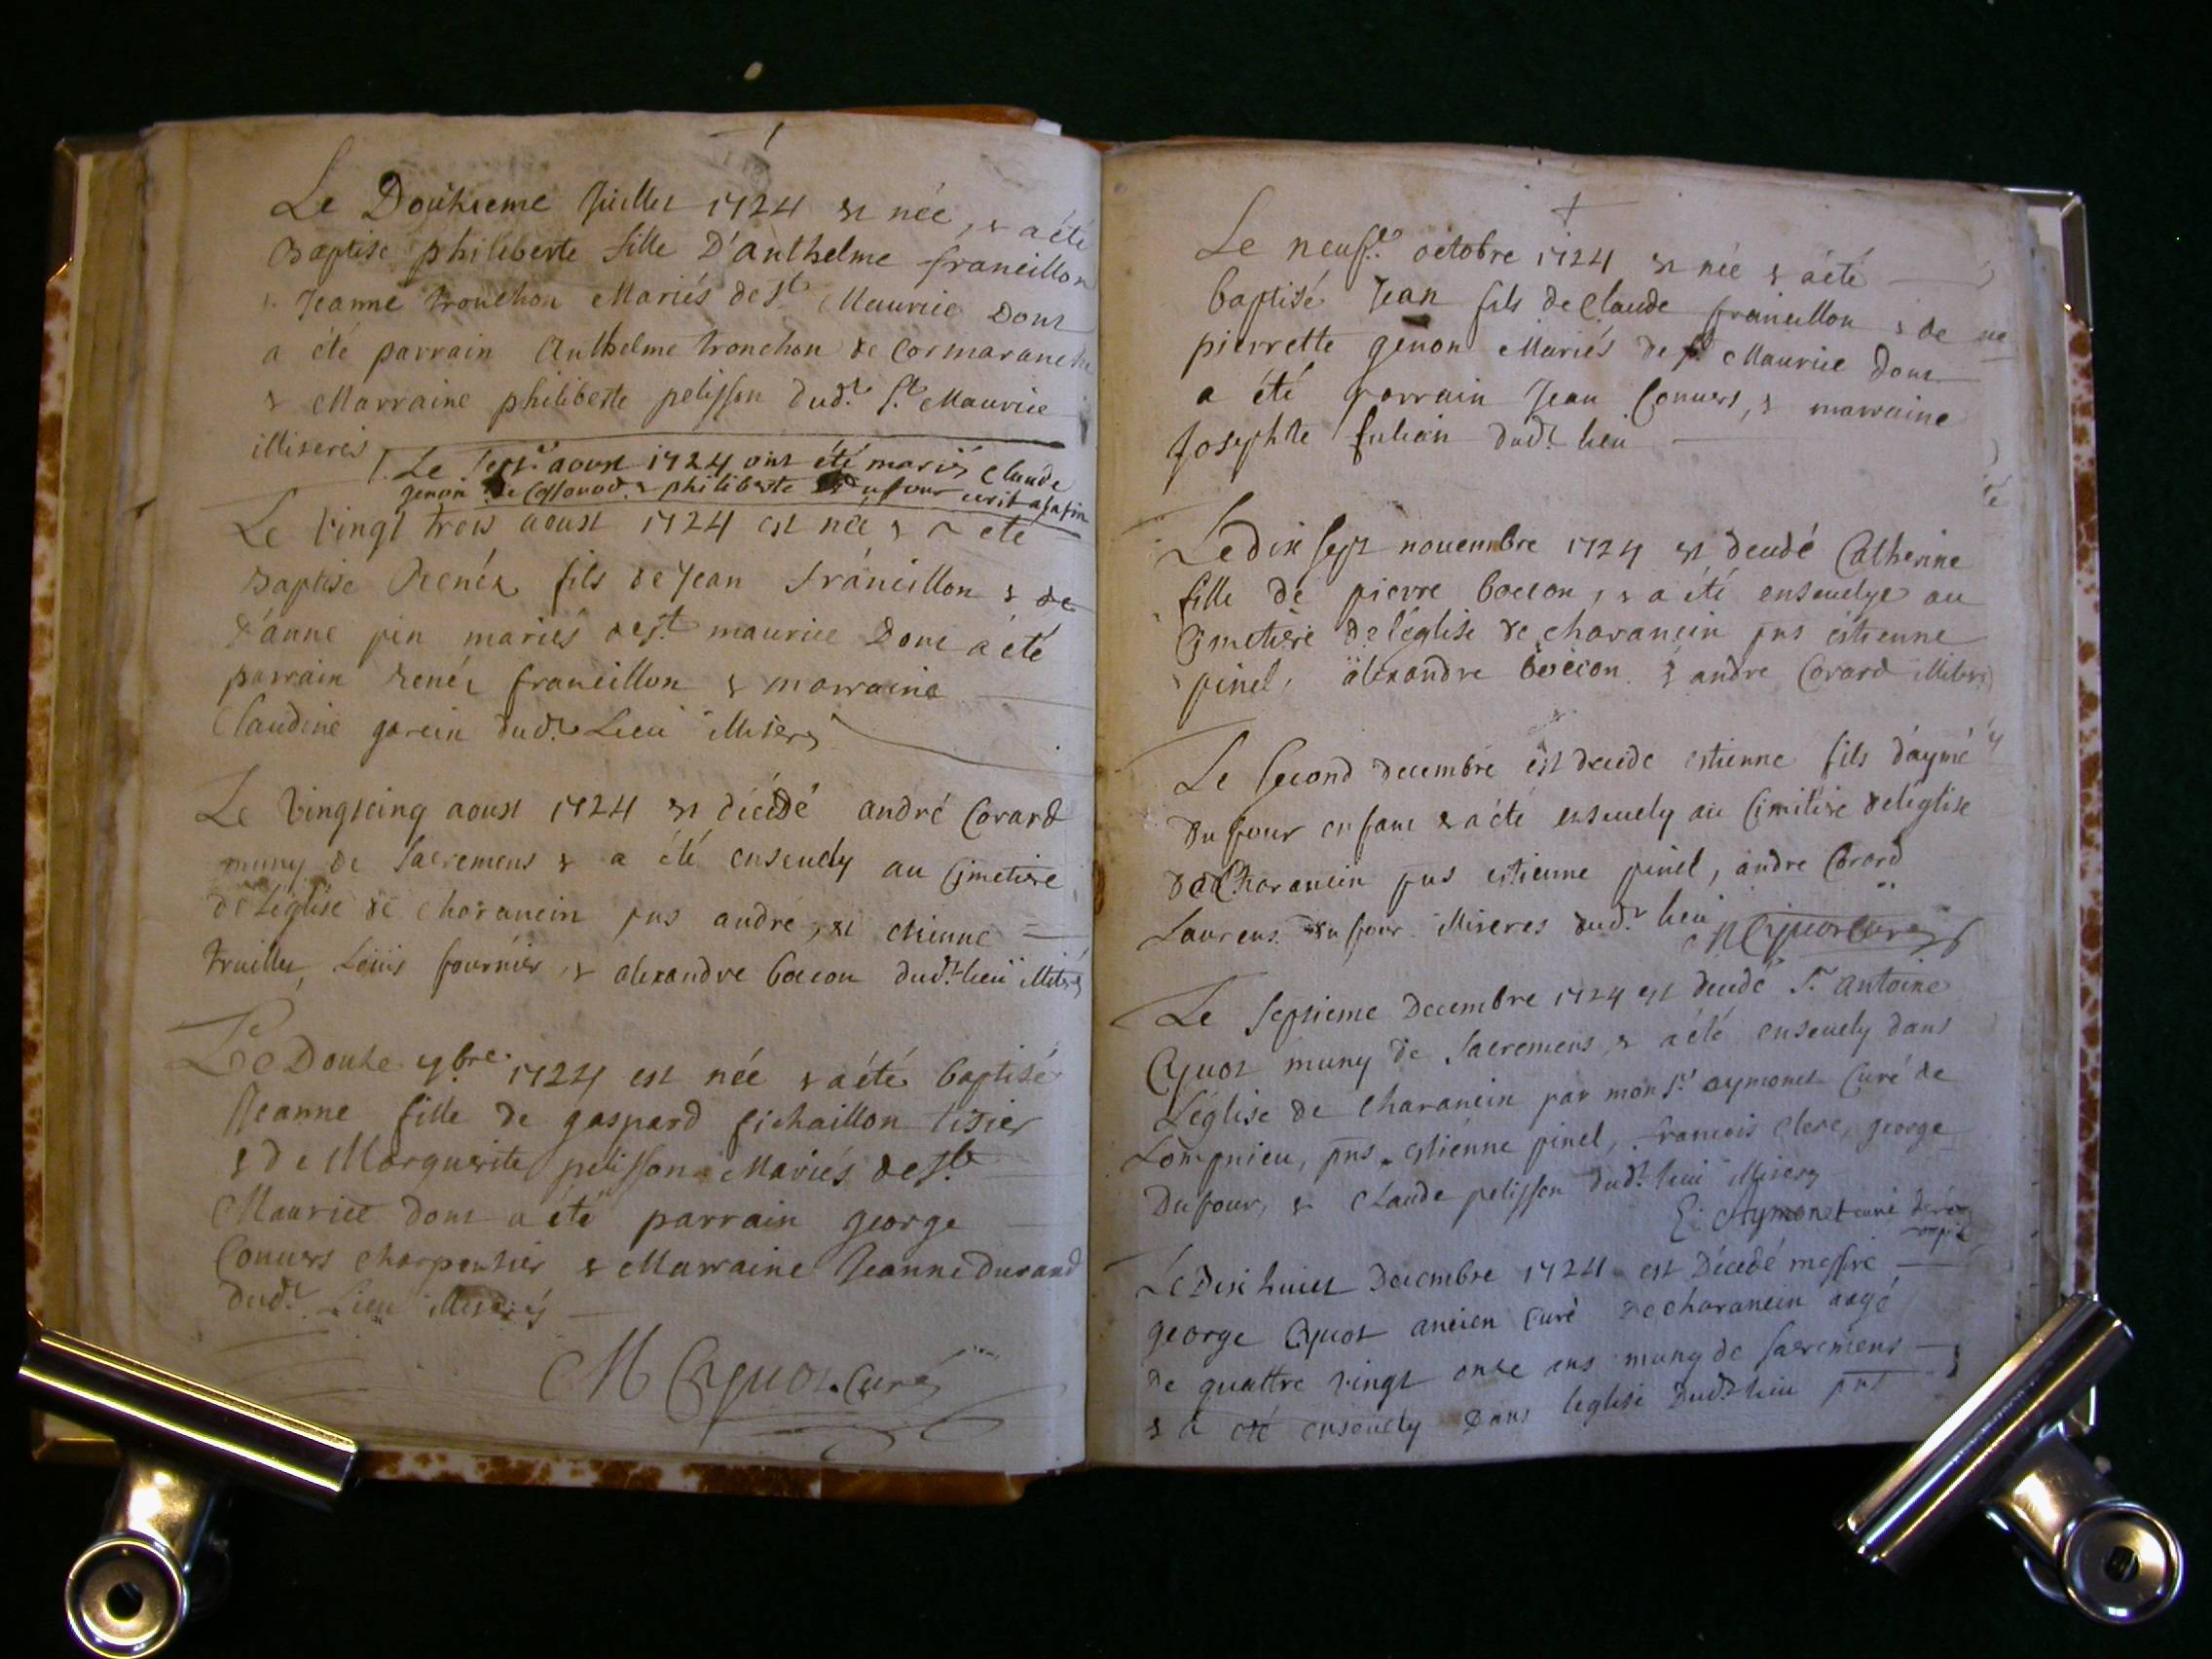 Le Douzieme Juillet 1724 est née, & a été
Baptisé philiberte fille D'anthelme franeillon
& Jeanne tronchon Mariés de st Maurice Dont
a été parrain Anthelme tronchon de Cormaranche
& Marraine philiberte pelisson dudt. st. Maurice
illiserés
Le sept. aoust 1724 ont été mariés Claude
genon de & philiberte Dufour
Le vingt trois aoust 1724 est née & a eté
Baptisé Renéz fils de Jean franeillon & de
D'anne pin mariés de st maurice Dont a été
parrain Renéz franeillon & marraine
Claudine garein dudt. Lieu illiserés
Le vingtcinq aoust 1724 est décédé andré Corard
muny de Sacremens & a été enseuely au Cimetiere
de L'église de charancin pns andré, et etienne
truillet, Loüis fournier, & alexandre boccon dudt. lieu illiterés
Le Douze 7bre. 1724 est née & a été baptisé
Jeanne fille de gaspard fichaillon tisier
& de Marguerite pelisson Mariés de st.
Maurice dont a été parrain george
Conuers charpentier & Marraine Jeanne durand
dudt. Lieu illiserés
M Cyuot. Curé
Le neufe. octobre 1724 est née & a été
baptisé Jean fils de Claude franeillon & de
pierrette genon Mariés de st Maurice dont
a été parrain Jean Conuers, & marraine
Josephte Julian dudt. lieu
Le dix sept nouembre 1724 est decedé Catherine
fille de pierre boccon, & a été enseuelye au
Cimetiere de l'église de charancin pns estienne
pinel, alexandre boccon & andre Corard
Le second decembre est decede estienne fils d'aymé
Du four enfant & a été enseuely au Cimitiere de l'église
de Charancin pns estienne pinel, andre Corard
Laurens du four illiseres dudt. lieu
M Cyuot Curé
Le septieme Decembre 1724 est decedé sr. antoine
Cyuot muny de Sacremens & a été enseuely dans
L'église de charancin par mon sr. aymonet Curé de
Lompnieu, pns estienne pinel, francois clerc, george
Dufour, & Claude pelisson dudt. lieu illiserés
E: Aymonet curé
Le Dix huict Decembre 1724 est Décedé messire
george Cyuot ancien Curé de charancin aagé
de quattre vingt onze ans muny de sacremens
& a eté enseuely Dans leglise Dudt. lieu pns